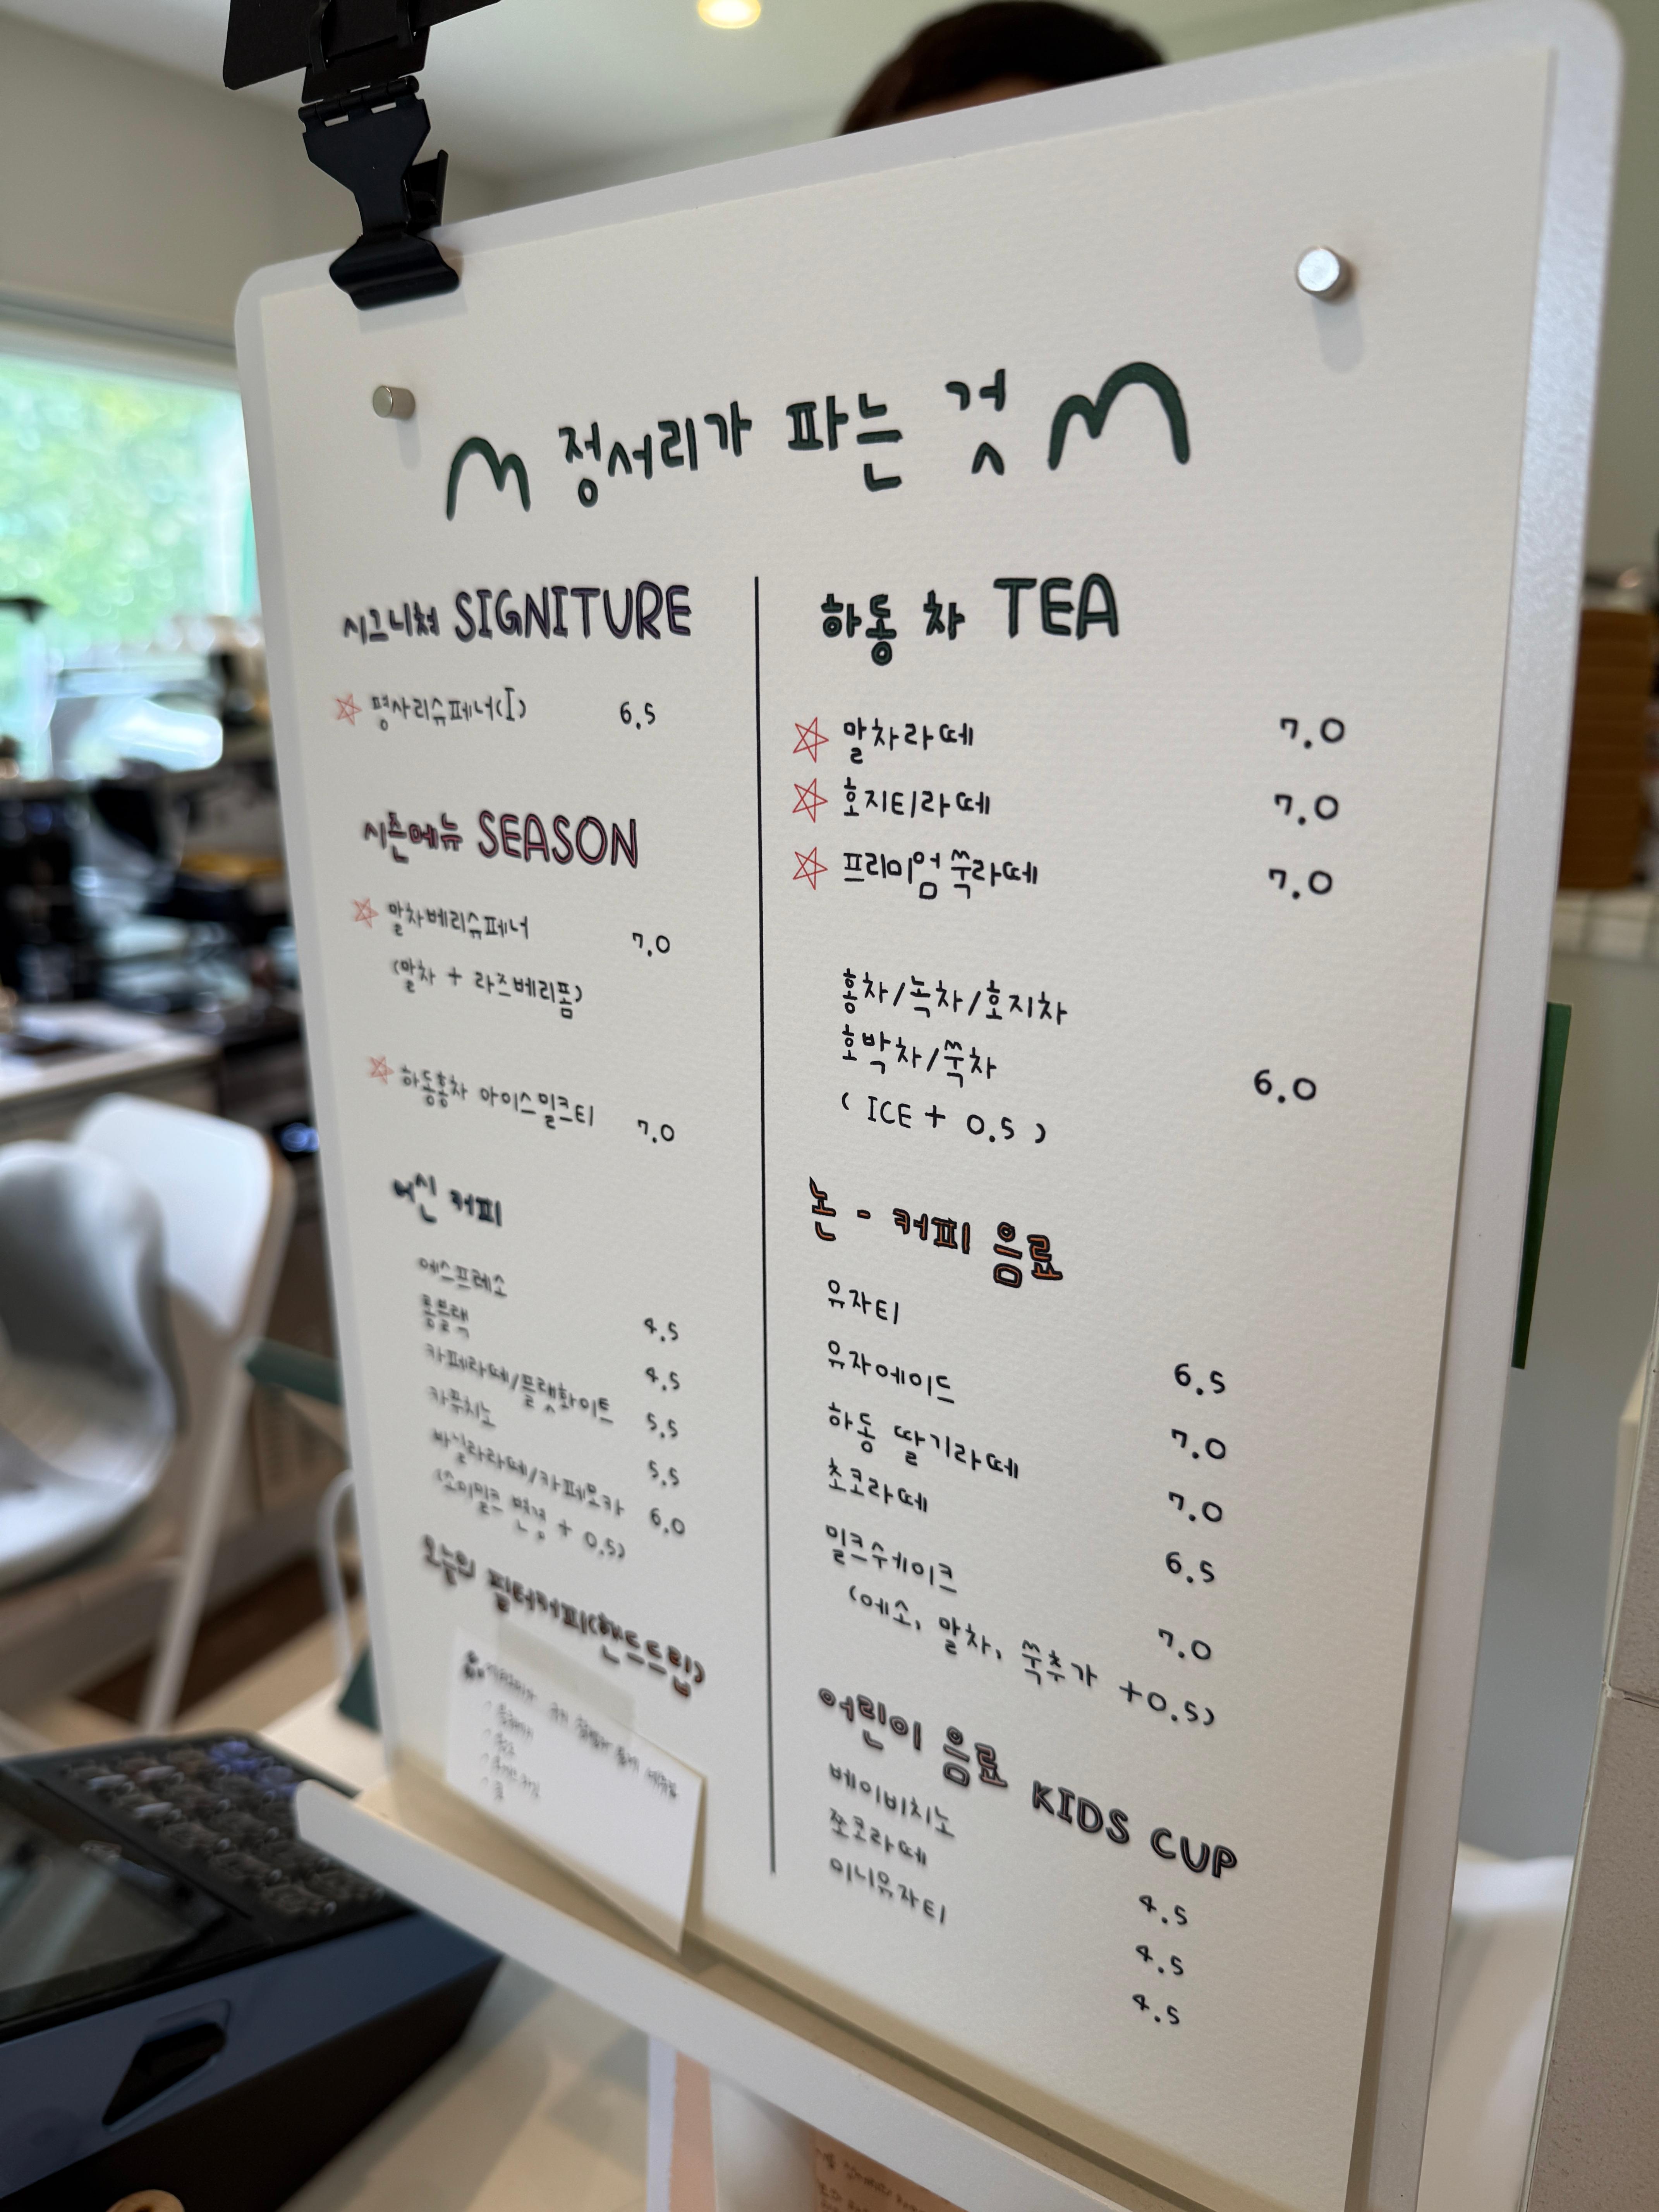 정서리가 파는 것
시그니쳐 SIGNITURE
평사리슈페너(I) 6.5
시즌메뉴 SEASON
말차베리슈페너 7.0
(말차 + 라즈베리폼)
하동홍차 아이스밀크티 7.0
머신 커피
에스프레소 4.5
롱블랙 4.5
카페라떼/플랫화이트 5.5
카푸치노 5.5
바닐라라떼/카페모카 6.0
(소이밀크 변경 + 0.5)
오늘의 필터커피(핸드드립)
하동 차 TEA
말차라떼 7.0
호지티라떼 7.0
프리미엄 쑥라떼 7.0
홍차/녹차/호지차
호박차/쑥차 6.0
( ICE + 0.5 )
논 - 커피 음료
유자티 6.5
유자에이드 7.0
하동 딸기라떼 7.0
초코라떼 6.5
밀크쉐이크 7.0
(에소, 말차, 쑥추가 +0.5)
어린이 음료 KIDS CUP
베이비치노 4.5
쪼코라떼 4.5
미니유자티 4.5